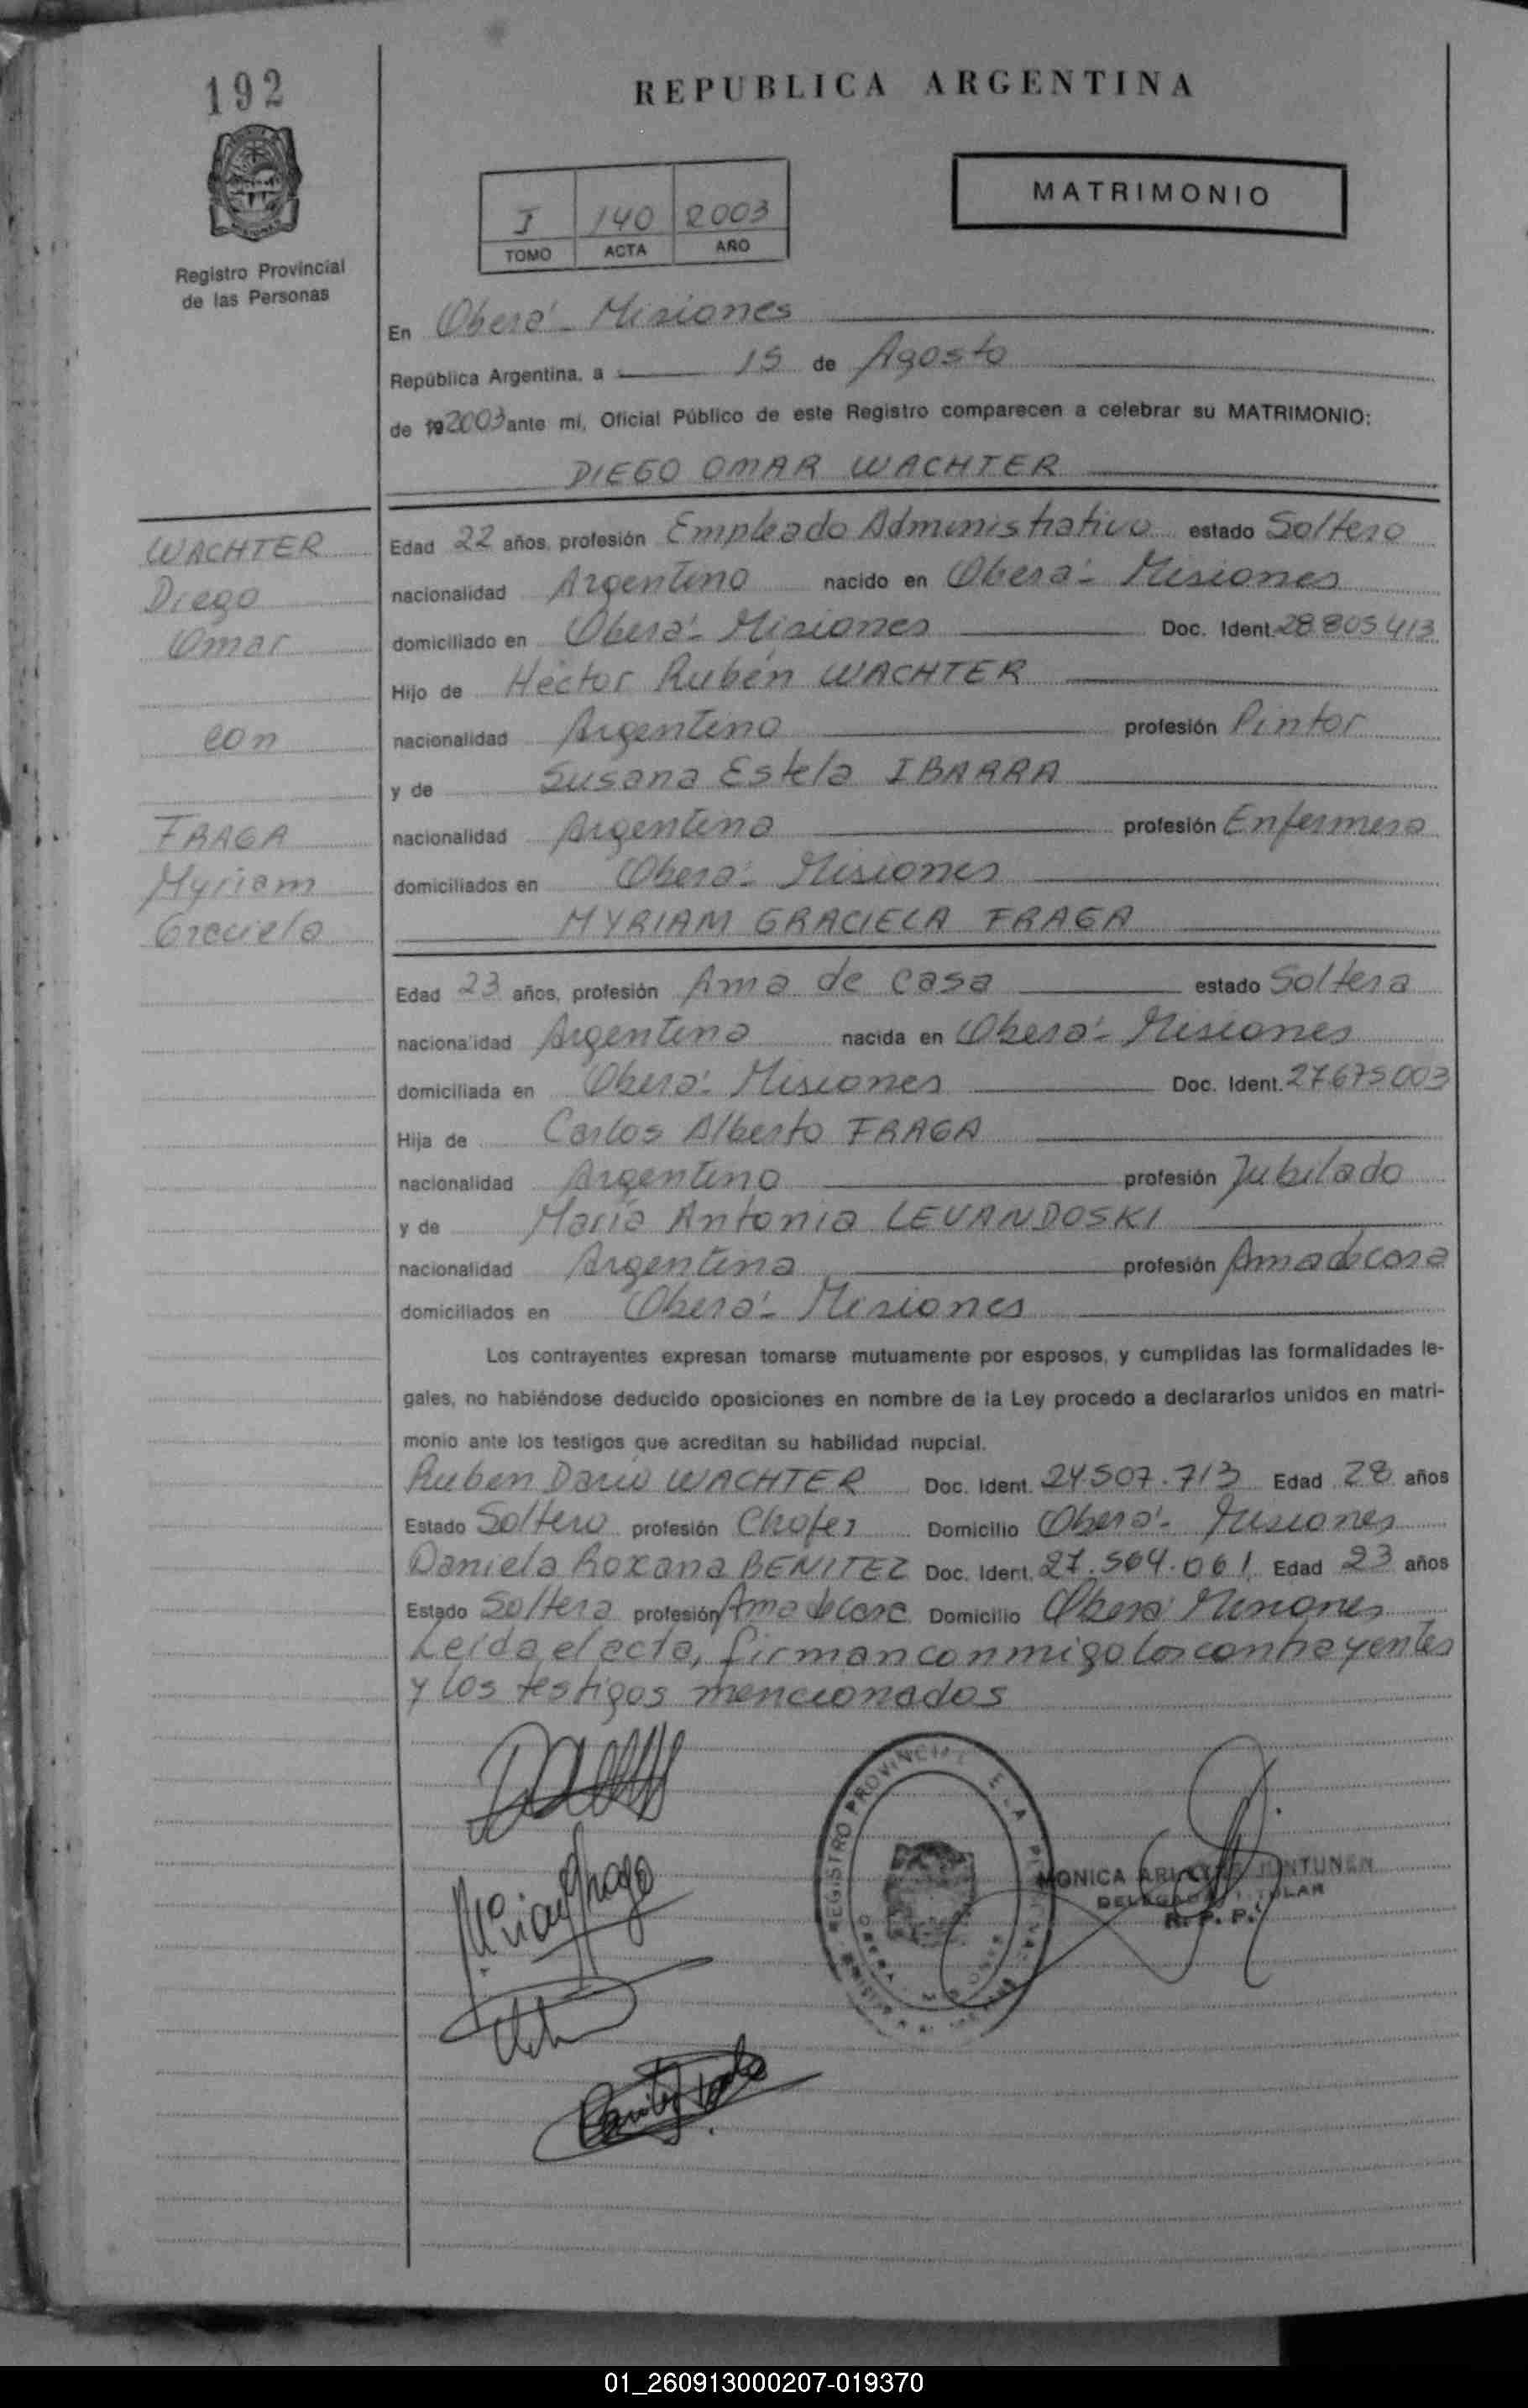 192
REPUBLICA ARGENTINA
MATRIMONIO
I 140 2003
TOMO ACTA AÑO
Registro Provincial
de las Personas
En Oberá - Misiones
República Argentina, a 15 de Agosto
de 192003 ante mí, Oficial Público de este Registro comparecen a celebrar su MATRIMONIO:
DIEGO OMAR WACHTER
WACHTER
Diego
Omar
con
FRAGA
Myriam
Graciela
Edad 22 años, profesión Empleado Administrativo estado Soltero
nacionalidad Argentino nacido en Oberá - Misiones
domiciliado en Oberá - Misiones Doc. Ident. 28.805.413
Hijo de Héctor Rubén WACHTER
nacionalidad Argentino profesión Pintor
y de Susana Estela IBARRA
nacionalidad Argentina profesión Enfermera
domiciliados en Oberá - Misiones
MYRIAM GRACIELA FRAGA
Edad 23 años, profesión Ama de casa estado Soltera
nacionalidad Argentina nacida en Oberá - Misiones
domiciliada en Oberá - Misiones Doc. Ident. 27.675.003
Hija de Carlos Alberto FRAGA
nacionalidad Argentino profesión Jubilado
y de María Antonia LEVANDOSKI
nacionalidad Argentina profesión Ama de casa
domiciliados en Oberá - Misiones
Los contrayentes expresan tomarse mutuamente por esposos, y cumplidas las formalidades le-
gales, no habiéndose deducido oposiciones en nombre de la Ley procedo a declararlos unidos en matri-
monio ante los testigos que acreditan su habilidad nupcial.
Ruben Dario WACHTER Doc. Ident. 24.507.713 Edad 28 años
Estado Soltero profesión Chofer Domicilio Oberá - Misiones
Daniela Roxana BENITEZ Doc. Ident. 27.564.061 Edad 23 años
Estado Soltera profesión Ama de casa Domicilio Oberá Misiones
Leída el acta, firman conmigo los contrayentes
y los testigos mencionados
REGISTRO PROVINCIAL
MONICA JUNTUNEN
DELEGADA TITULAR
R. P. P.
01_260913000207-019370